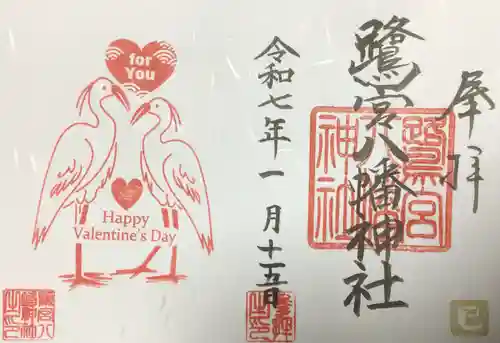 奉拝
鷺宮八幡神社
令和七年一月十五日
for
You
Happy
Valentine's Day
鷺宮
神社
巳